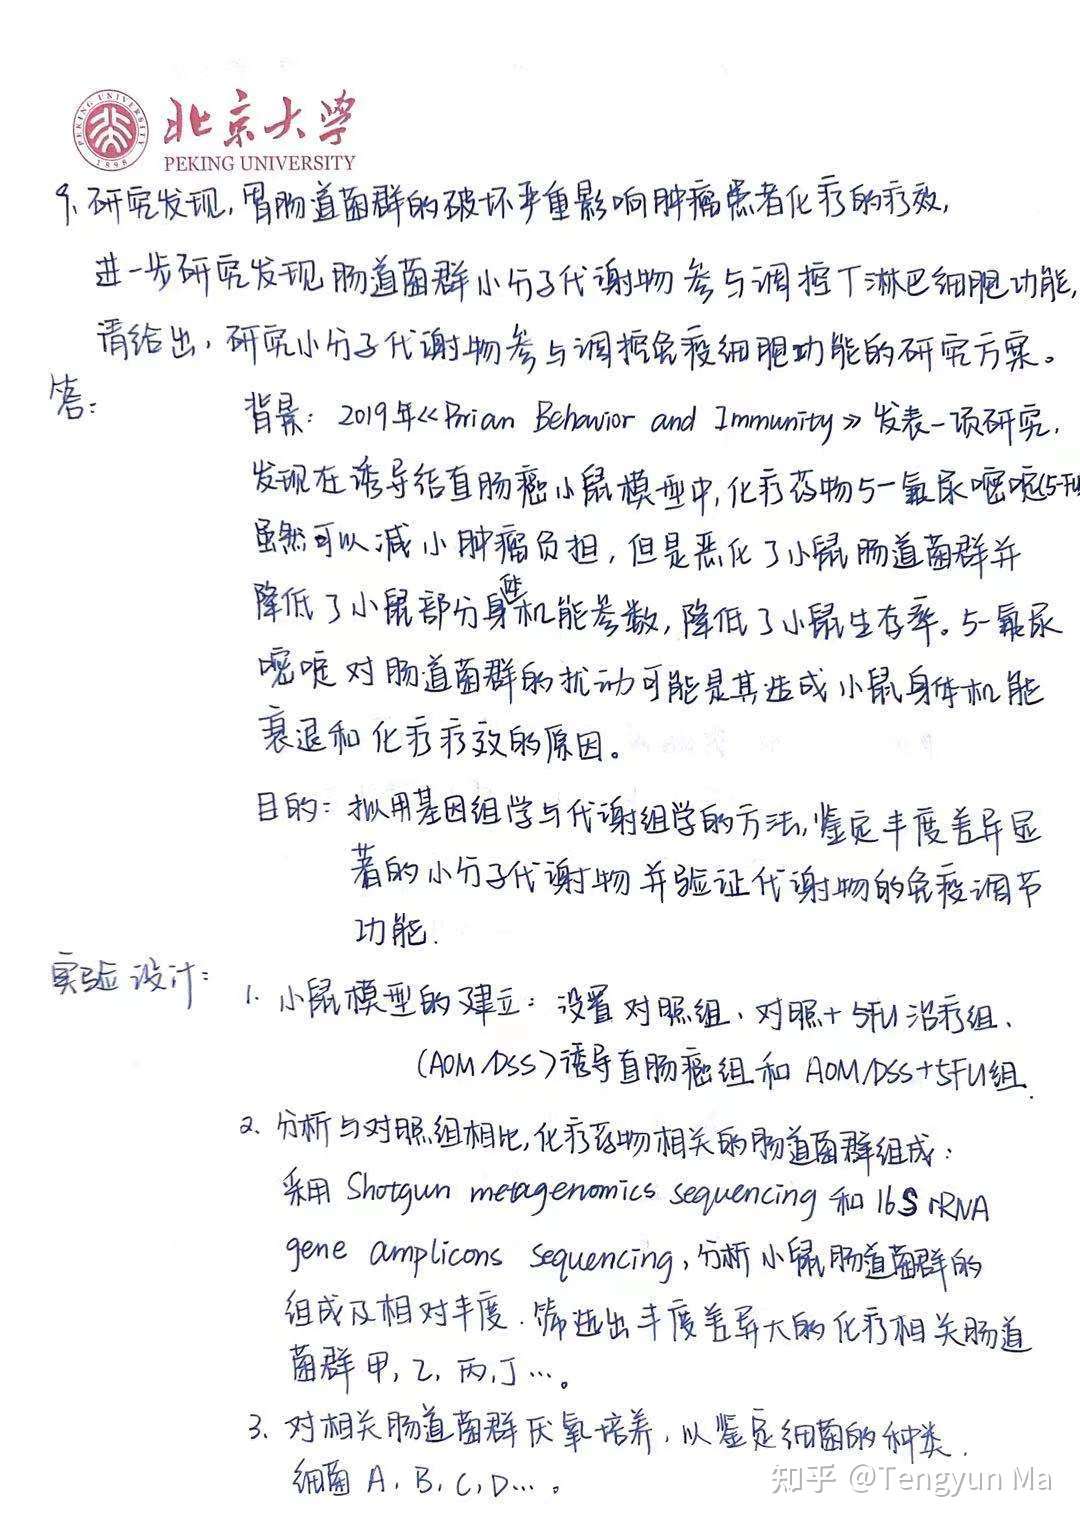 PEKING UNIVERSITY
1898
北京大学
PEKING UNIVERSITY
9、研究发现，胃肠道菌群的破坏严重影响肿瘤患者化疗的疗效，
进一步研究发现肠道菌群小分子代谢物参与调控T淋巴细胞功能，
请给出，研究小分子代谢物参与调控免疫细胞功能的研究方案。
答：
背景：2019年《Brian Behavior and Immunity》发表一项研究，
发现在诱导结直肠癌小鼠模型中，化疗药物5-氟尿嘧啶(5-FU
虽然可以减小肿瘤负担，但是恶化了小鼠肠道菌群并
降低了小鼠部分身体机能参数，降低了小鼠生存率。5-氟尿
嘧啶对肠道菌群的扰动可能是其造成小鼠身体机能
衰退和化疗疗效的原因。
目的：拟用基因组学与代谢组学的方法，鉴定丰度差异显
著的小分子代谢物并验证代谢物的免疫调节
功能.
实验设计：
1. 小鼠模型的建立：设置对照组、对照+5FU治疗组、
(AOM/DSS)诱导直肠癌组和AOM/DSS+5FU组.
2. 分析与对照组相比，化疗药物相关的肠道菌群组成：
采用Shotgun metagenomics sequencing和16S rRNA
gene amplicons sequencing，分析小鼠肠道菌群的
组成及相对丰度.筛选出丰度差异大的化疗相关肠道
菌群甲，乙，丙，丁…。
3. 对相关肠道菌群厌氧培养，以鉴定细菌的种类.
细菌A，B，C，D…。
知乎 @Tengyun Ma